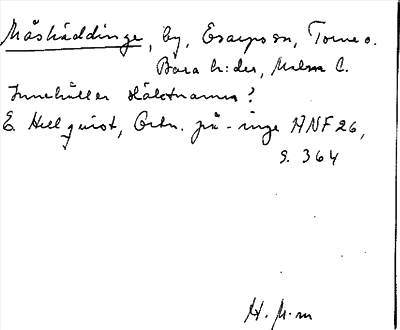 Måskäddinge, by, Esarps sn, Torna o.
Bara h:der, Malm. l.
Innehåller släktnamn?
E. Hellquist, Ortn. på -inge ANF 26,
s. 364